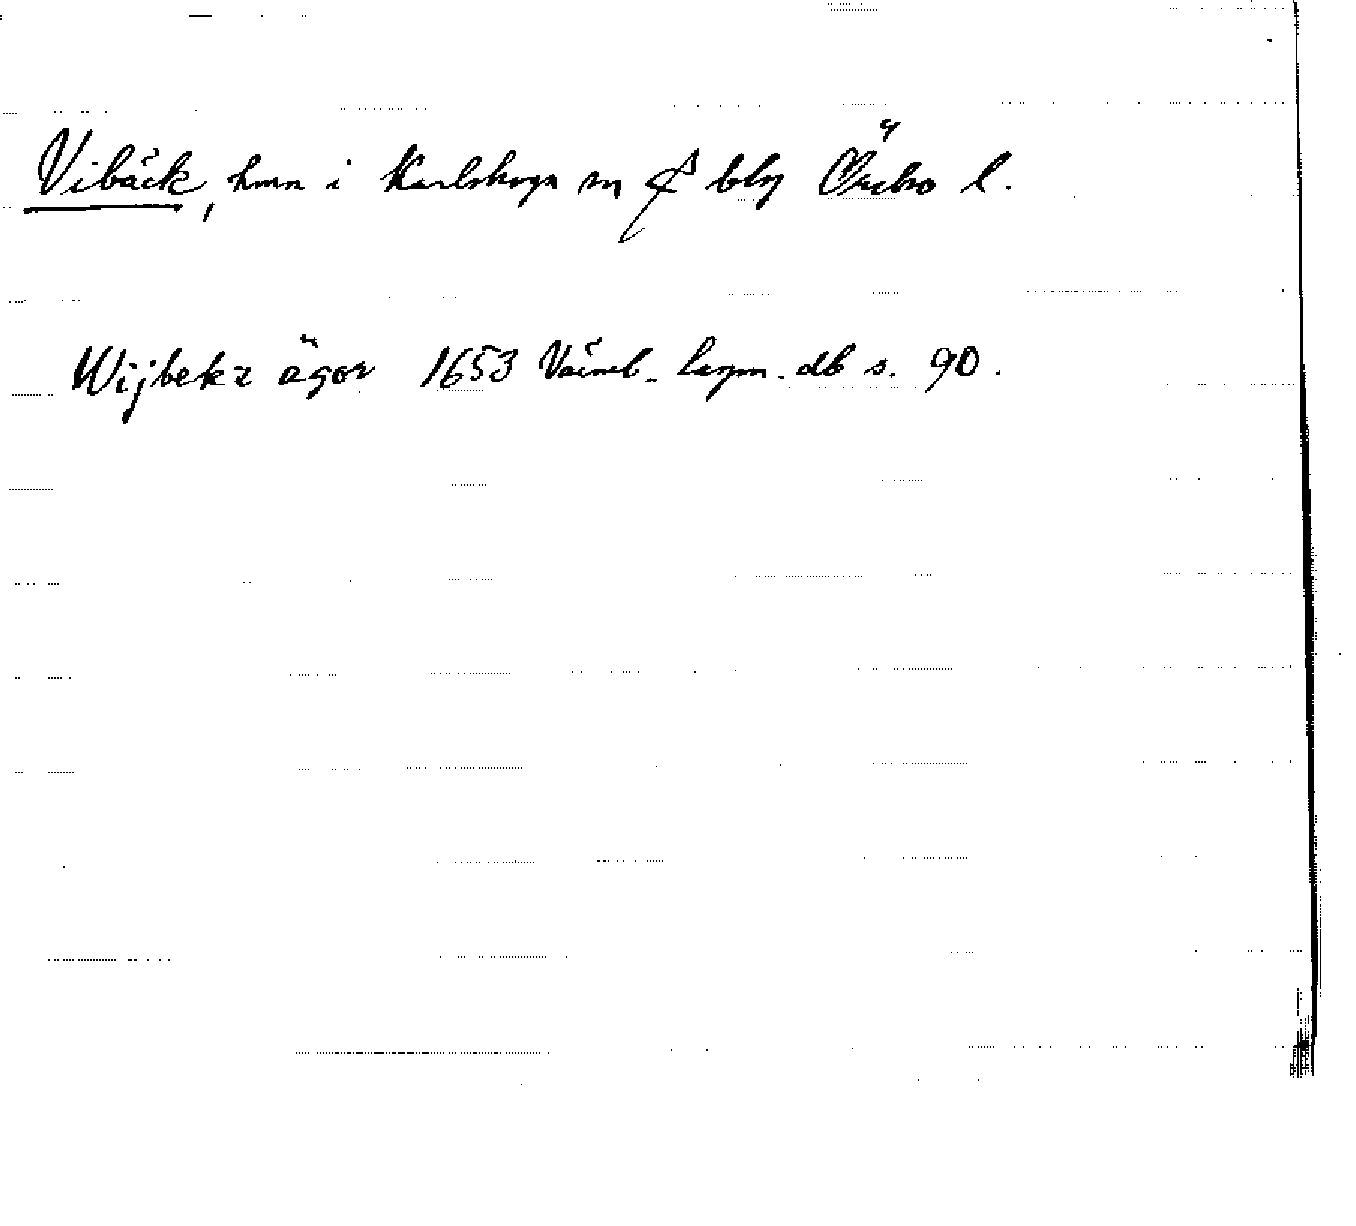 Vibäck, hmn i Karlskoga sn bhg Örebro l.
Wijbekz ägor 1653 Värml. lagm. db s. 90.